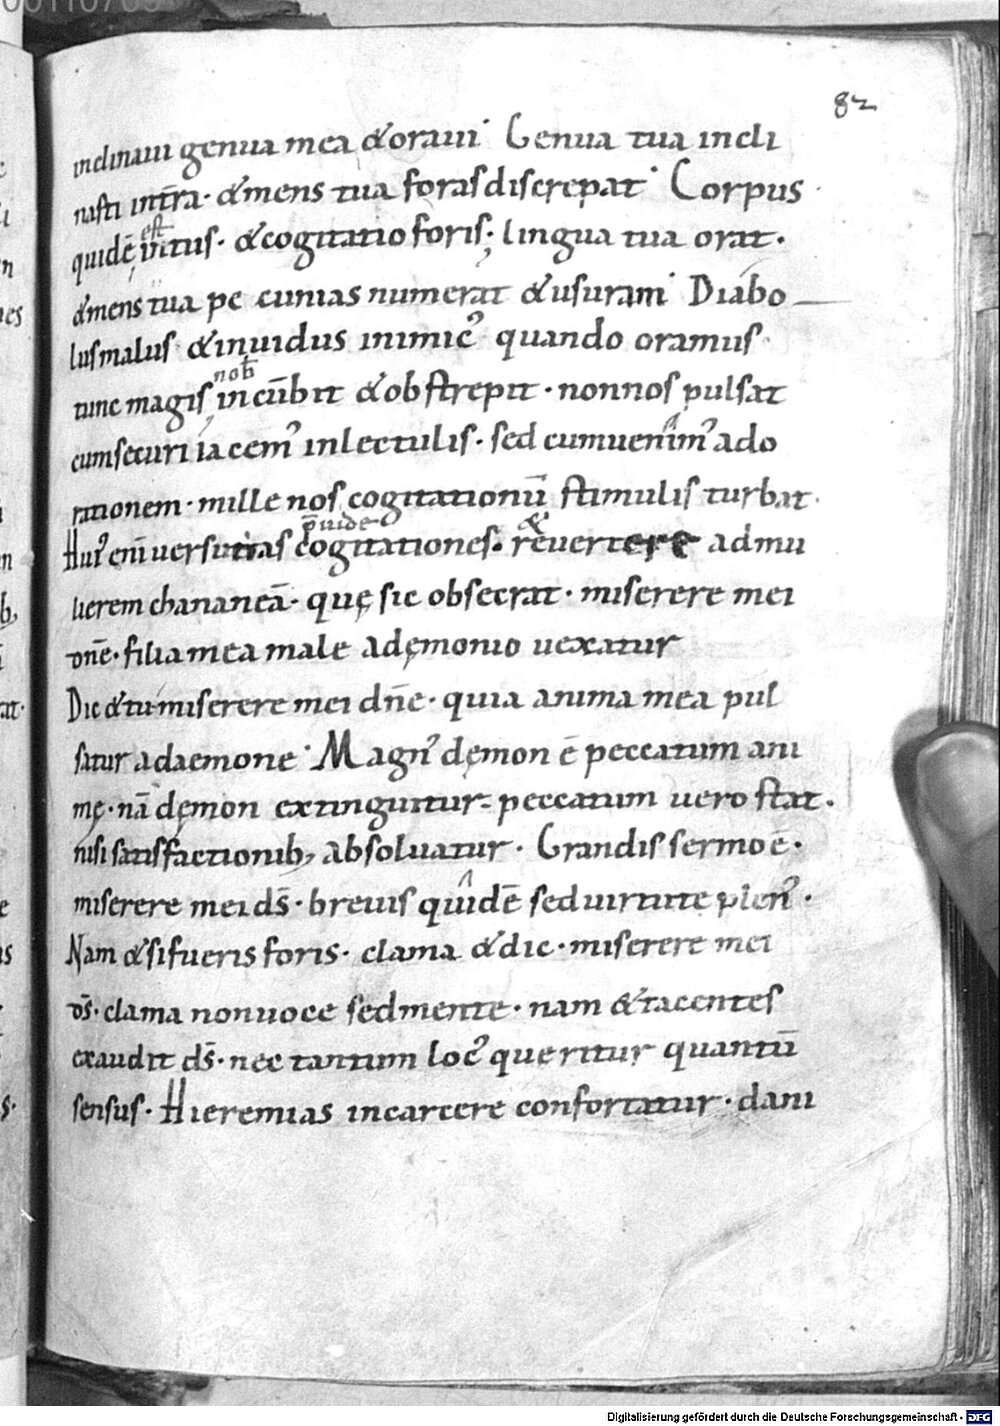 82
inclinaui genua mea & oraui Genua tua incli
nasti intra · & mens tua foras discrepat Corpus
est
quidē intus · & cogitatio foris; lingua tua orat ·
& mens tua pe cunias numerat & usuram Diabo
lus malus & inuidus inimic᾽ quando oramus
nob̄
tunc magis incūbit & obstrepit · non nos pulsat
cum securi iacem᾽ in lectulis · sed cum uenim᾽ ad o
rationem · mille nos cogitationū stimulis turbat ·
p̄uide &
Hui᾽ eni uersutias cogitationes · revertere ad mu
lierem chananeā · quę sic obsecrat · miserere mei
dn̄e · filia mea male a dęmonio uexatur
Dic & tu miserere mei dn̄e · quia anima mea pul
satur a daemone Magn᾽ dęmon ē peccatum ani
mę · nā dęmon extinguitur · peccatum uero stat ·
nisi satisfactionib; absoluatur · Grandis sermo ē ·
miserere mei ds̄ · breuis quidē sed uirtute plen᾽ ·
Nam & si fueris foris · clama & dic · miserere mei
ds̄ · clama non uoce sed mente · nam & tacentes
exaudit ds̄ · nec tantum loc᾽ queritur quantū
sensus · Hieremias in carcere confortatur · dani
Digitalisierung gefördert durch die Deutsche Forschungsgemeinschaft - DFG